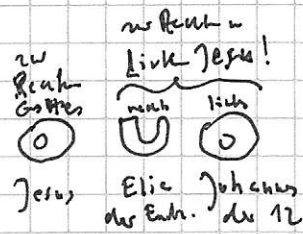 zur Rechten u
Linken Jesus!
zur
Rechten
Gottes
rechts links
Jesus Elia Johannes
der Entr. der 12